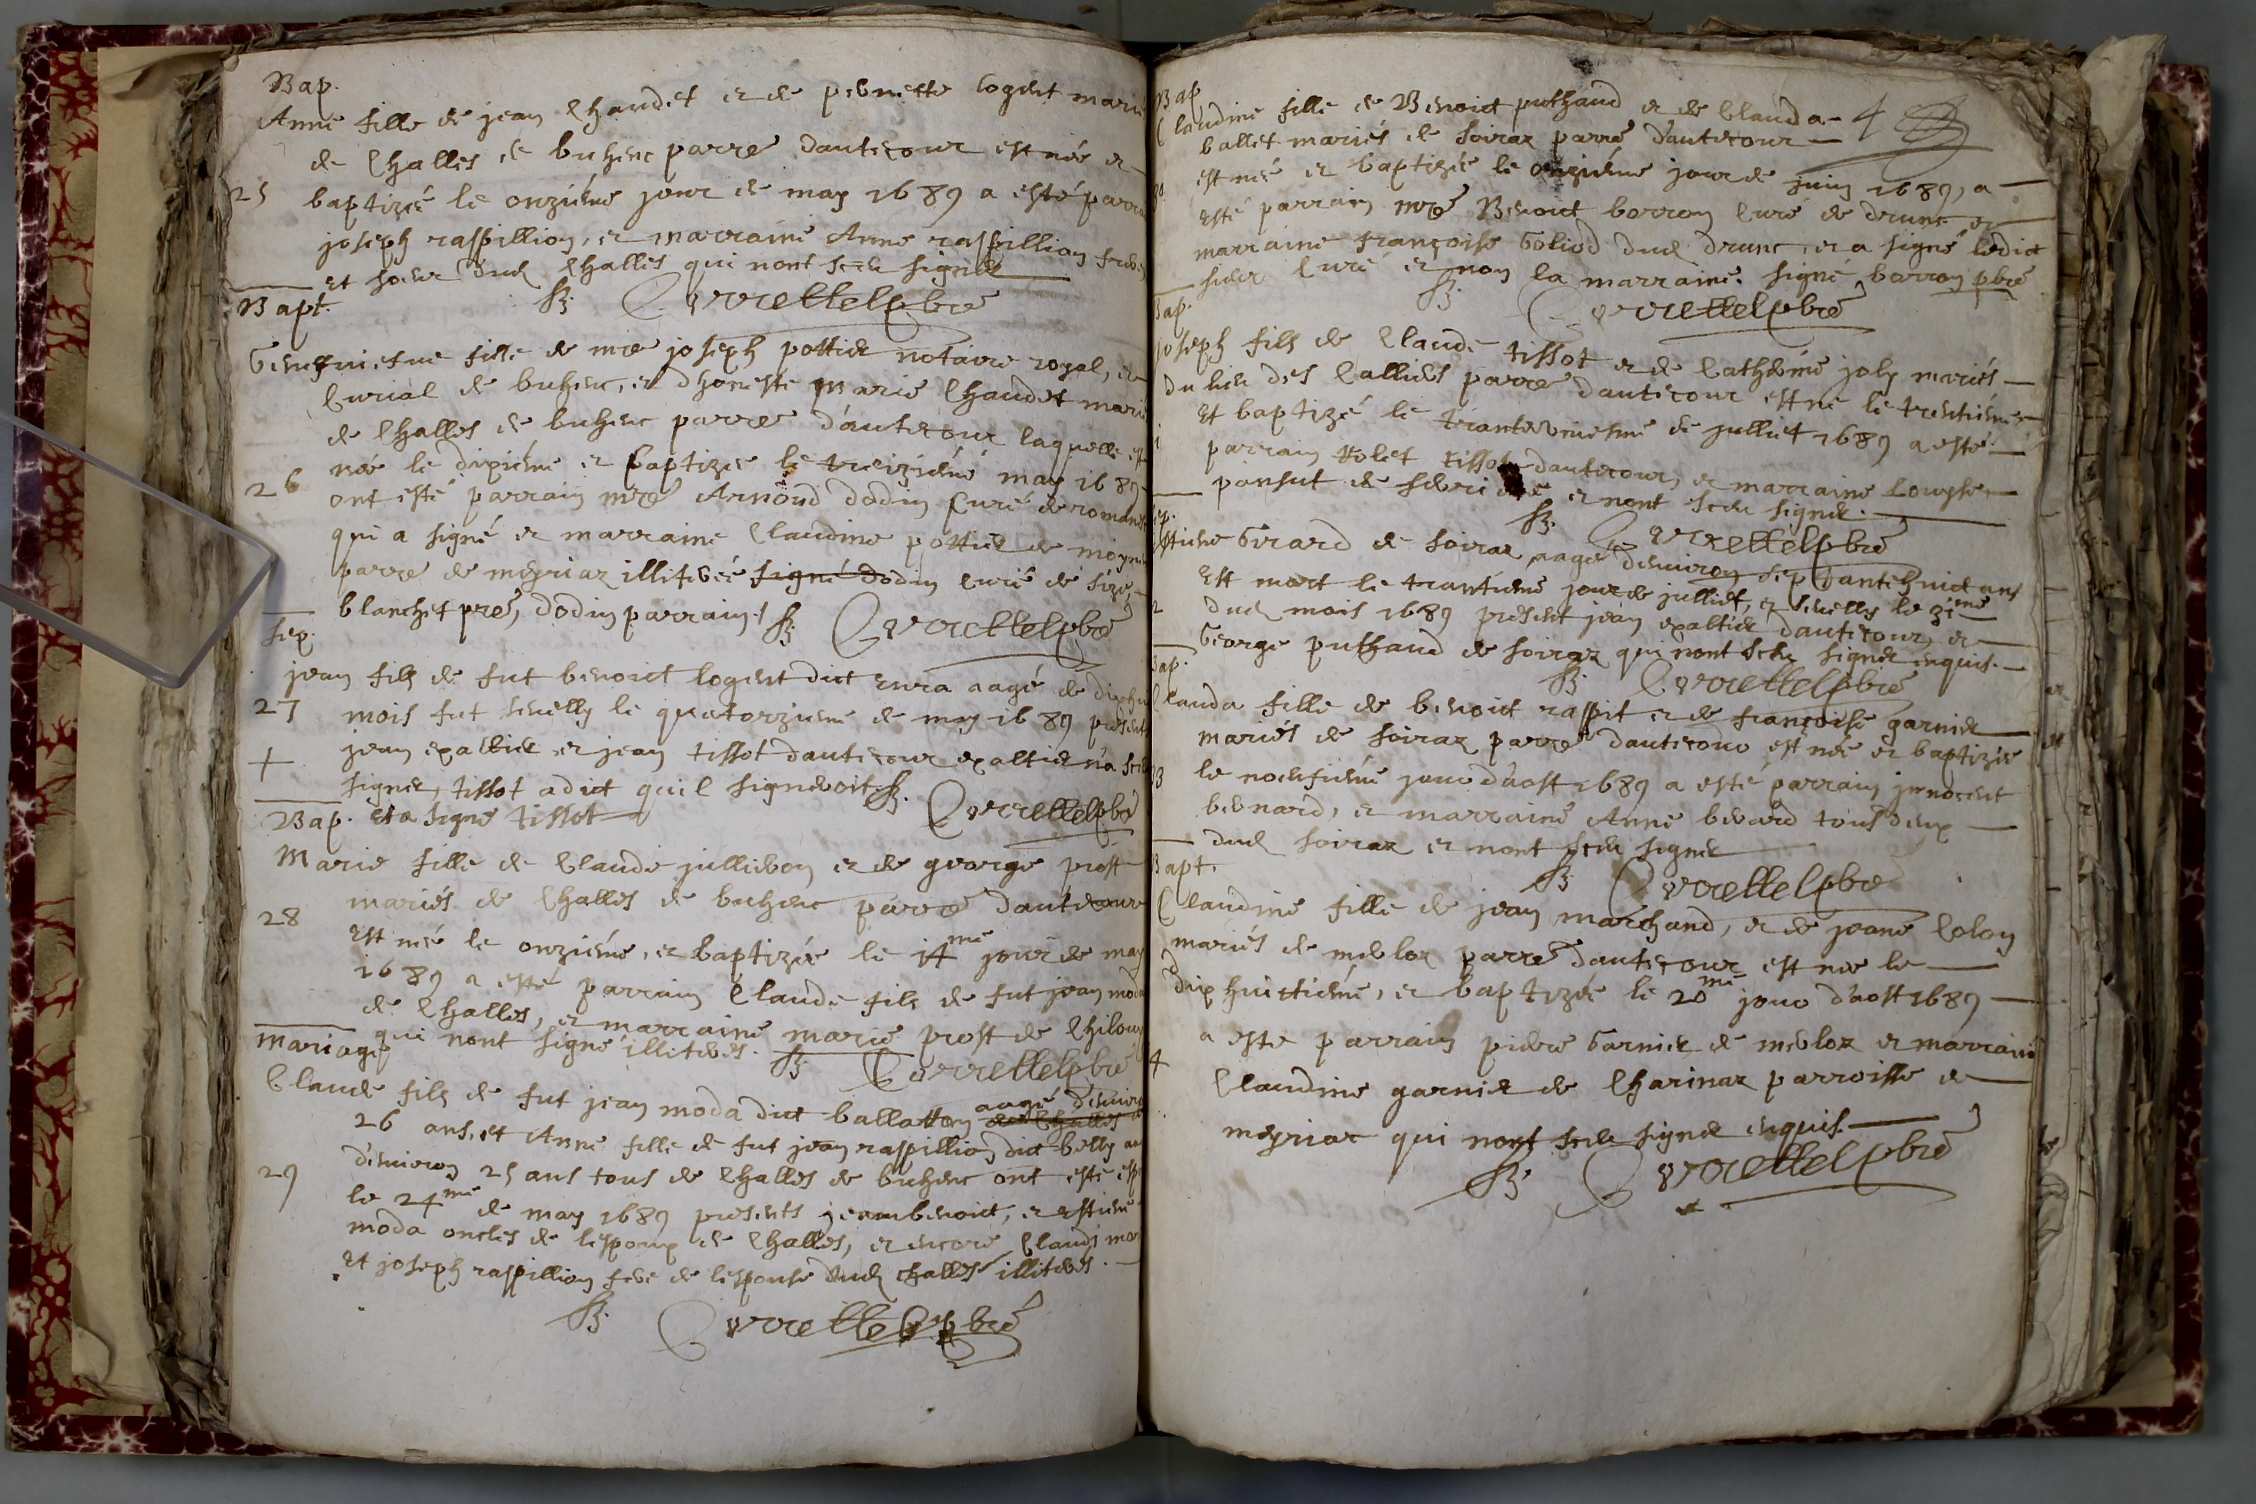 Bap.
Anne fille de jean Chaudet et de pernette logert marie
de Challes de buhenc parre dautecour est née et
25 baptizée le onziéme jour de may 1689 a esté parra
joseph raspillion, et marraine Anne raspillion frere
et soeur dud Challes qui nont sceu signer
Bapt. Sz. Cvrrettelpbre
fille de mre joseph pottier notaire royal, et
Curial de buhenc, et dhoneste marie Chaudet marie
de Challes de buhenc parre dautecour laquelle est
née le dixiéme et baptizée le treiziéme may 1689
26 ont esté parrain mre Arnoud dodin Curé de romane
qui a signé et marraine Claudine pottier de
parre de meyriaz illiterée signé dodin Curé de
blanchet pre, dodin parrain. Sz. Cvrrettelpbre
Sep.
jean fils de fut benoict logert dict aagé de dixhu
27 mois fut sevelly le quatorziéme de may 1689 presents
jean exaltier et jean tissot dautecour exaltier na sceu
+
signer, tissot a dict quil signeroit. Sz. Cvrrettelpbre
Bap. et a signé tissot
Marie fille de Claude jullieron et de george prost
mariés de Challes de buhenc parre dautecour
28 est née le onziéme, et baptizée le 14me jour de may
1689 a esté parrain Claude fils de fut jean moda
de Challes, et marraine marie prost de Chilour
qui nont signé illiterés. Sz. Cvrrettelpbre
mariage
Claude fils de fut jean moda dict ballatton aagé denviron
26 ans, et Anne fille de fut jean raspillion dict belly aa
29 denviron 25 ans tous de Challes de buhenc ont esté esp
le 24me de may 1689 presents jean benoict, et estiene
moda oncles de lespoux de Challes, et encore Claude mo
et joseph raspillion frere de lespouse dud challes illiterés.
Sz. Cvrrettelpbre
Bap
Claudine fille de Benoict puthaud et de Clauda
ballet mariés de soiraz parre dautecour
est née et baptizée le onziéme jour de juin 1689, a
esté parrain mre Benoict borron Curé de drunc et
marraine françoise Goliod dud drunc, et a signé ledict
sieur Curé et non la marraine. signé borron pbre
Sz. Cvrrettelpbre
Bap.
joseph fils de Claude tissot et de Catherine joly mariés
du lieu des Calliers parre dautecour est né le trentiéme
et baptizé le tranteuniesme de julliet 1689 a esté
parrain tissot dautecour, et marraine Louyse
pansut de et nont sceu signer.
Sz. Cvrrettelpbre
Sep.
Estiene Girard de soiraz aagé denviron septantehuict ans
est mort le trantiéme jour de julliet, et sevelly le 31me
dud mois 1689 present jean exaltier dautecour, et
George puthaud de soiraz qui nont sceu signer enquis.
Sz. Cvrrettelpbre
Bap.
Clauda fille de benoict raspit et de françoise garnier
mariés de soiraz parre dautecour est née et baptizée
le noeufiéme jour daost 1689 a esté parrain jnnocent
bernard, et marraine Anne berard tous deux
dud soiraz et nont sceu signer
Sz. Cvrrettelpbre
Bapt.
Claudine fille de jean marchand, et de jeane Colon
mariés de merloz parre dautecour est née le
dixhuittiéme, et baptizée le 20me jour daost 1689
a esté parrain piere Garnier de merloz et marraine
4 Claudine garnier de Charinaz parroisse de
meyriaz qui nont sceu signer enquis.
Sz. Cvrrettelpbre